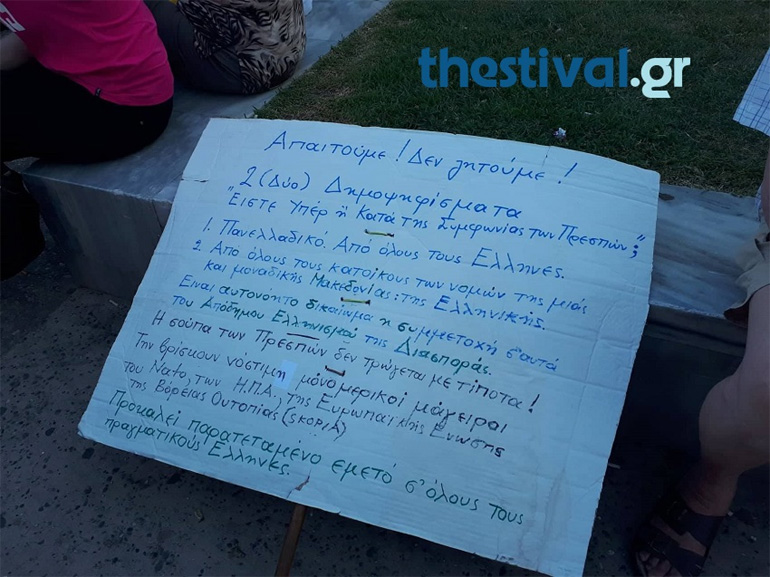 thestival.gr
Απαιτούμε! Δεν ζητούμε!
2 (Δύο) Δημοψηφίσματα
"Είστε Υπέρ ή Κατά της Συμφωνίας των Πρεσπών;"
1. Πανελλαδικό. Από όλους τους Έλληνες.
2. Από όλους τους κατοίκους των νομών της μιάς
και μοναδικής Μακεδονίας: της Ελληνικής.
Είναι αυτονόητο δικαίωμα η συμμετοχή σ'αυτά
του Απόδημου Ελληνισμού της Διασποράς.
Η σούπα των Πρεσπών δεν τρώγεται με τίποτα!
Την βρίσκουν νόστιμη μόνο μερικοί μάγειροι
του Νατο, των Η.Π.Α., της Ευρωπαϊκής Ένωσης
της Βόρειας Ουτοπίας (SKOPIA)
Προκαλεί παρατεταμένο εμετό σ'όλους τους
πραγματικούς Έλληνες.